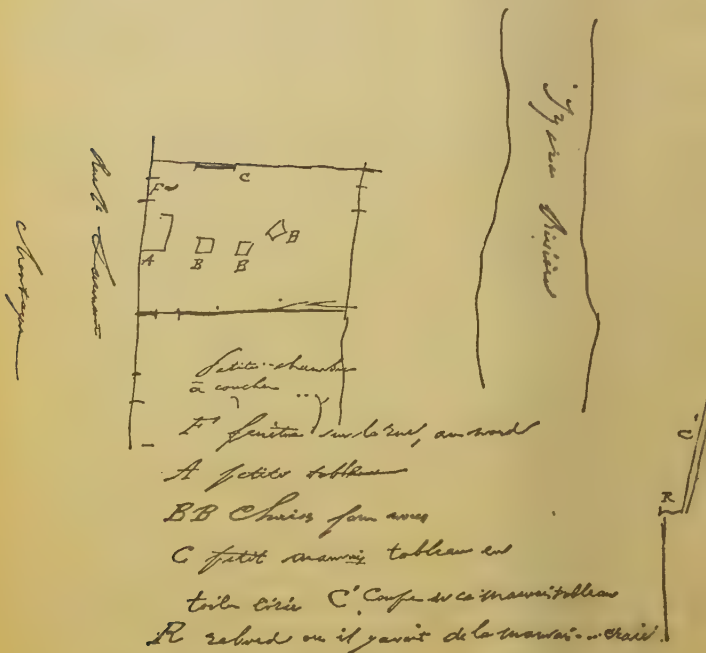 Isère Rivière
Rue St Laurent
Montagne
F
C
A
B
B
B
Petite chambre
à coucher
F fenêtre sur la rue, au nord
A petite table
BB Chaises pour nous
C petit mauvais tableau en
toile cirée C' Coupe de ce mauvais tableau
R rebord où il y avait de la mauvaise craie.
C'
R